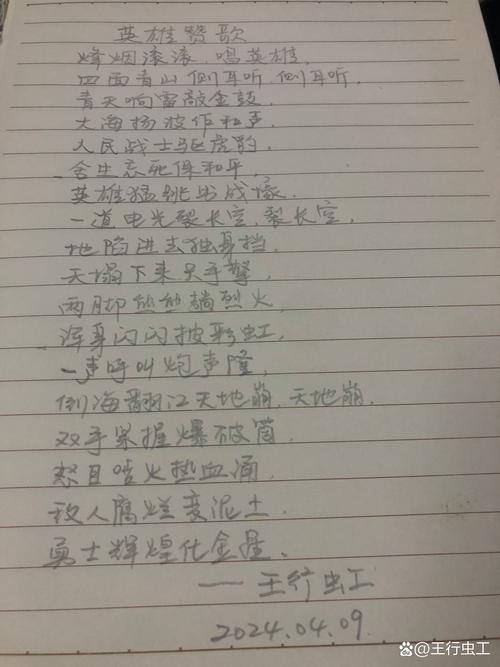 英雄赞歌
烽烟滚滚唱英雄,
四面青山侧耳听,侧耳听,
青天响雷敲金鼓,
大海扬波作和声,
人民战士驱虎豹,
舍生忘死保和平,
英雄猛跳出战壕,
一道电光裂长空,裂长空,
地陷进去独身挡,
天塌下来只手擎,
两脚丝丝趟烈火,
浑身闪闪披彩虹,
一声呼叫炮声隆,
倒海翻江天地崩,天地崩,
双手紧握爆破筒,
怒目喷火热血涌,
敌人腐烂变泥土,
勇士辉煌化金星、
——王行虫工
2024.04.09.
@王行虫工